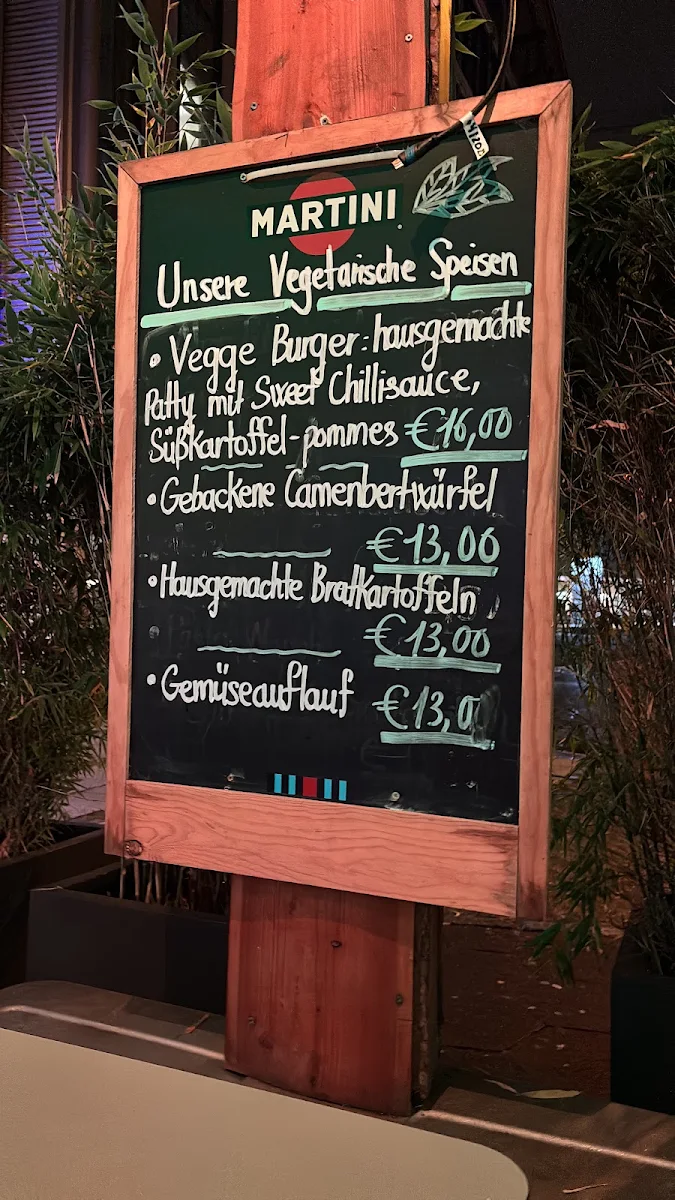 MARTINI
Unsere Vegetarische Speisen
• Vegge Burger: hausgemachte
Patty mit Sweet Chillisauce,
Süßkartoffel-pommes €16,00
• Gebackene Camenbertwürfel
€13,00
• Hausgemachte Bratkartoffeln
€13,00
• Gemüseauflauf €13,0